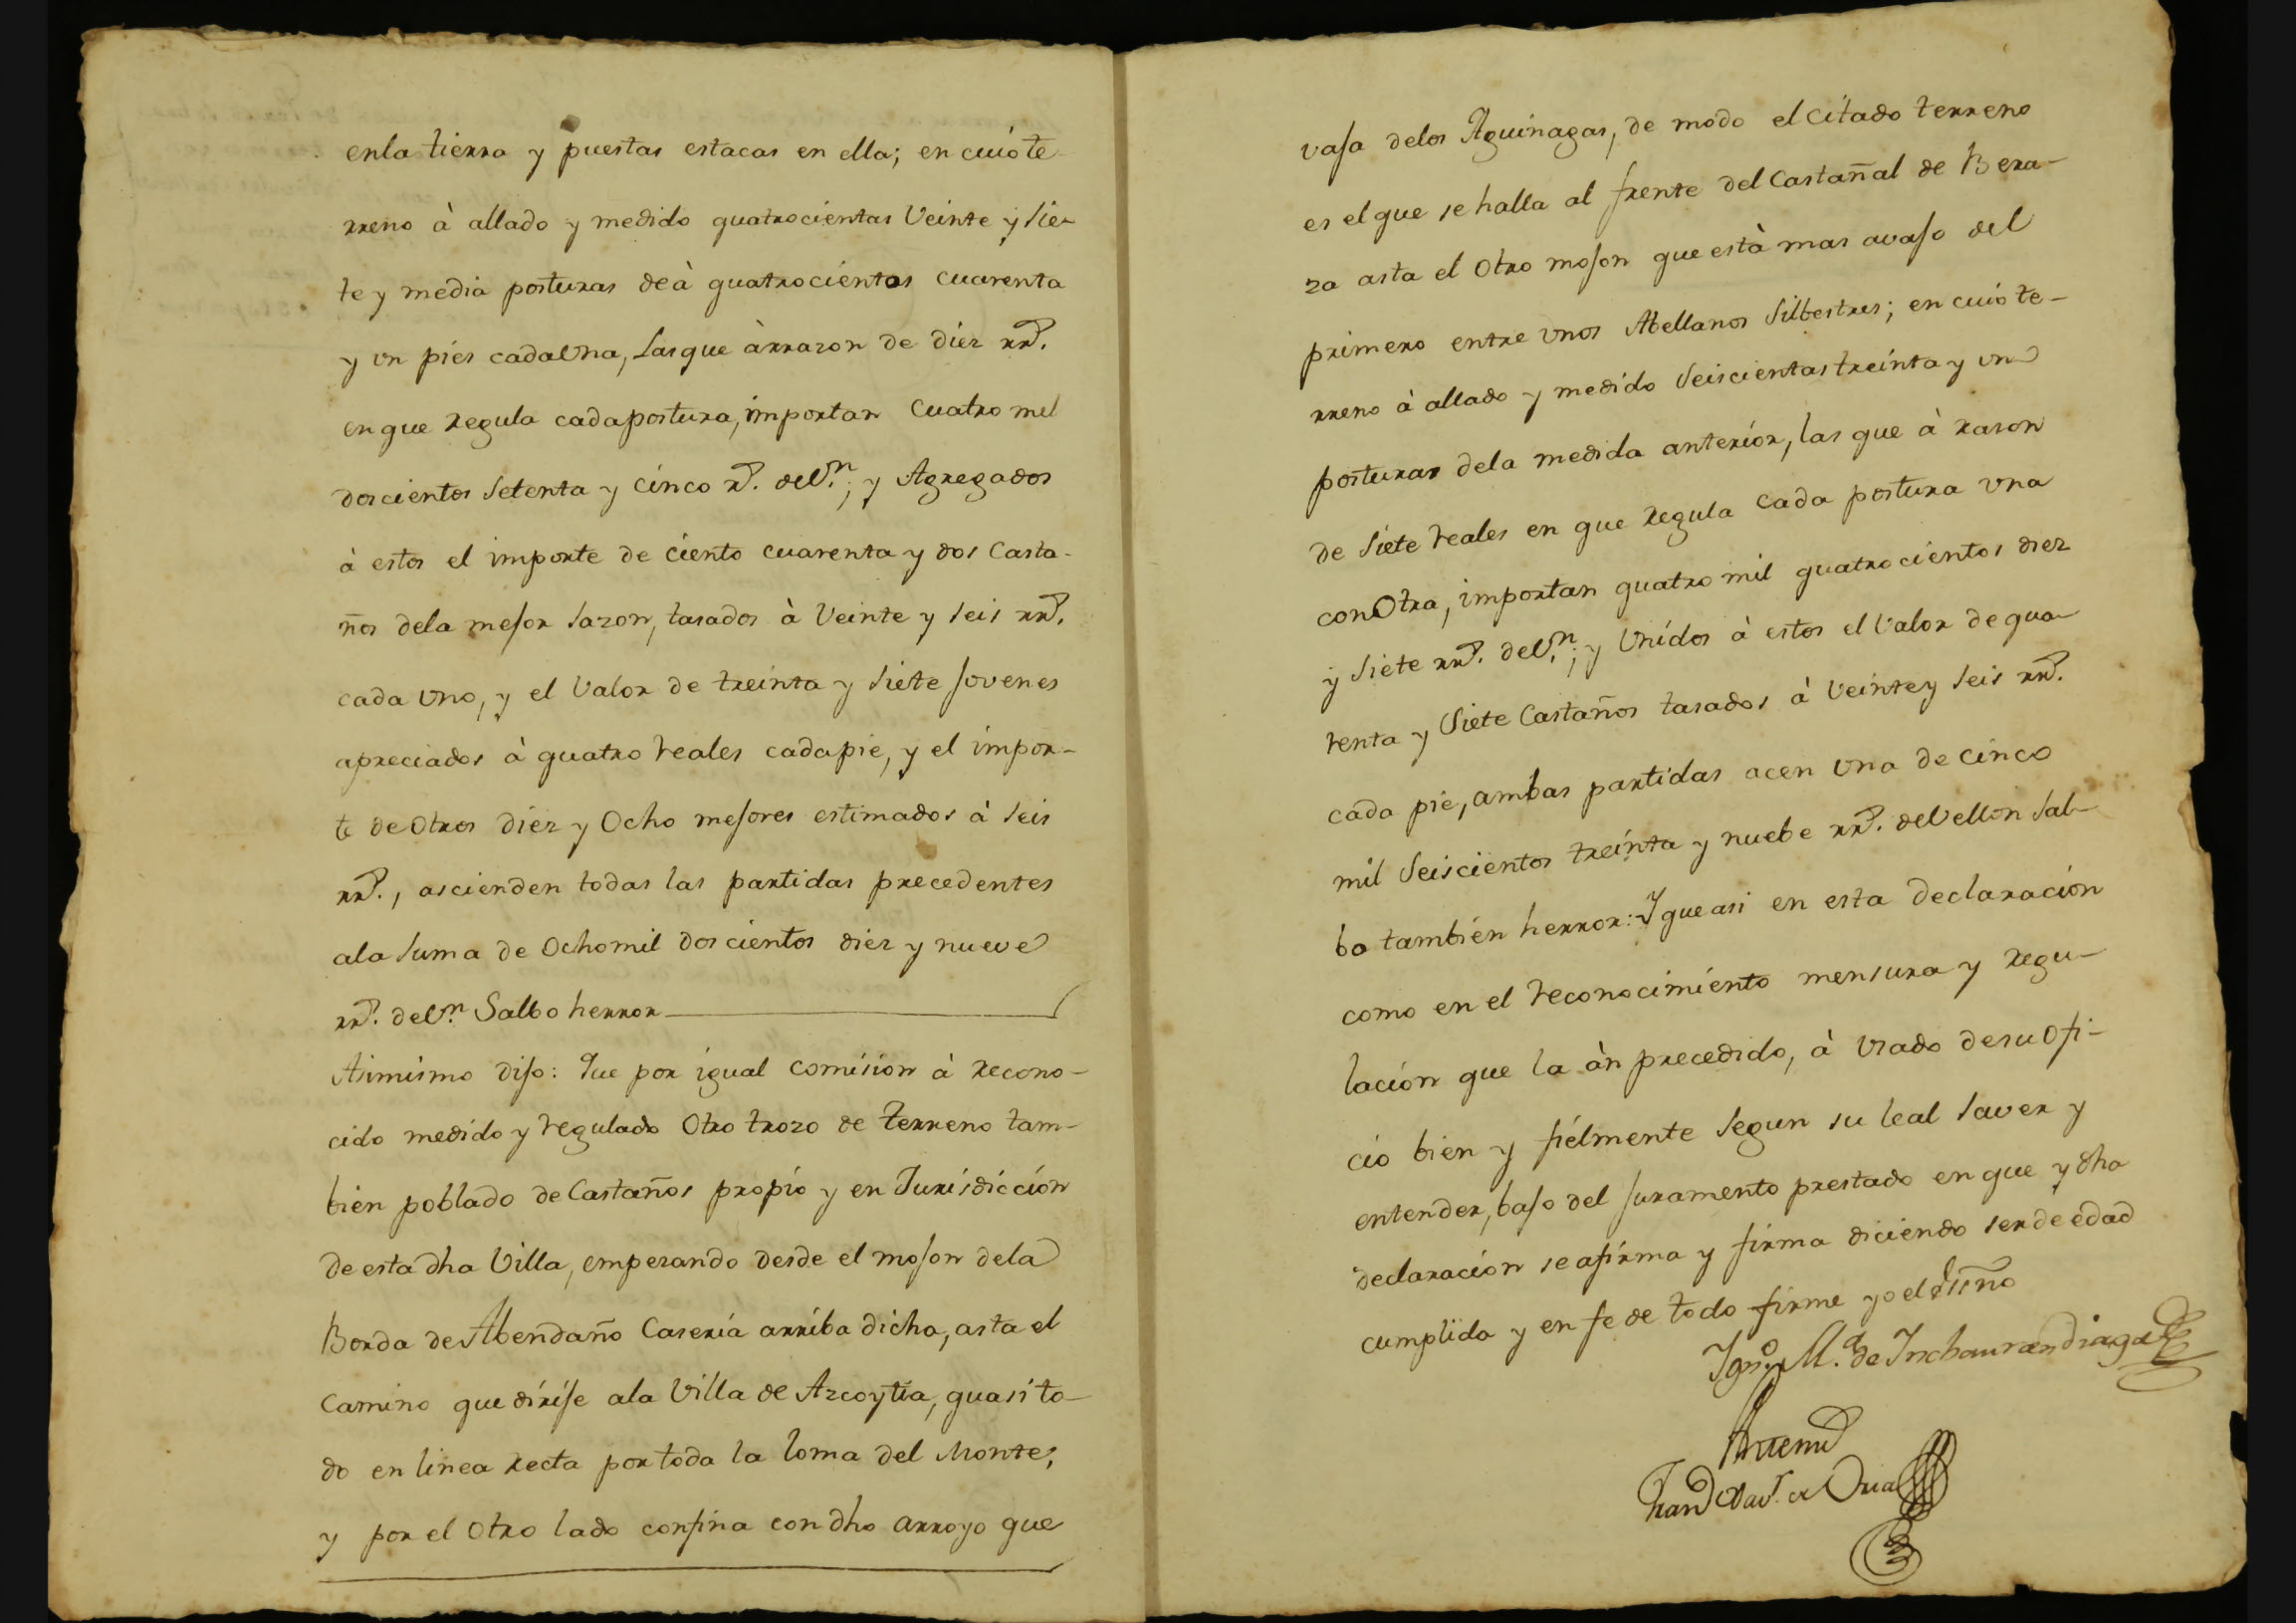 enla tierra y puestas estacas en ella; en cuio te-
rreno à allado y medido quatrocientas Veinte y Sie-
te y media posturas de à quatrocientos cuarenta
y un pies cadauna, Lasque àrrazon de diez rr.ˢ
en que regula cadapostura, importan Cuatro mil
doscientos Setenta y cinco r.ˢ deV.ⁿ; y Agregados
à estos el importe de ciento cuarenta y dos Casta-
ños dela mejor Sazon, tasados à Veinte y Seis rr.ˢ
cada uno, y el Valor de treinta y Siete Jovenes
apreciados à quatro reales cadapie, y el impor-
te de otros diez y Ocho mejores estimados à Seis
rr.ˢ, ascienden todas las partidas precedentes
ala Suma de Ochomil doscientos diez y nueve
rr.ˢ deV.ⁿ Salbo herror
Asimismo dijo: Que por igual Comision à recono-
cido medido y regulado Otro trozo de terreno tam-
bien poblado de Castaños propio y en Jurisdiccion
de esta dha Villa, empezando desde el mojon dela
Borda de Abendaño Caseria arriba dicha, asta el
Camino que dirije ala Villa de Azcoytia, quasi to-
do en linea recta por toda la loma del Monte;
y por el Otro lado confina con dho arroyo que
vaja delos Aguinagas, de modo el citado terreno
es el que se halla al frente del Castañal de Bera-
za asta el Otro mojon que està mas avajo del
primero entre unos Abellanos Silbestres; en cuio te-
rreno à allado y medido Seiscientas treinta y un
posturas dela medida anterior, las que à razon
de Siete reales en que regula cada postura una
con Otra, importan quatro mil quatrocientos diez
y Siete rr.ˢ deV.ⁿ; y Unidos à estos el Valor de qua-
renta y Siete Castaños tasados à Veinte y Seis rr.ˢ
cada pie, ambas partidas acen una de cinco
mil Seiscientos treinta y nuebe rr.ˢ deVellon Sal-
bo también herror: Y que asi en esta Declaración
como en el reconocimiento mensura y regu-
lación que la àn precedido, à Usado desu Ofi-
cio bien y fielmente Segun su leal Saver y
entender, bajo del Juramento prestado en que y dha
declaración se afirma y firma diciendo ser de edad
cumplida y en fe de todo firme yo el Essno
Ygn.º M.ª de Inchaurandiaga
Antemi